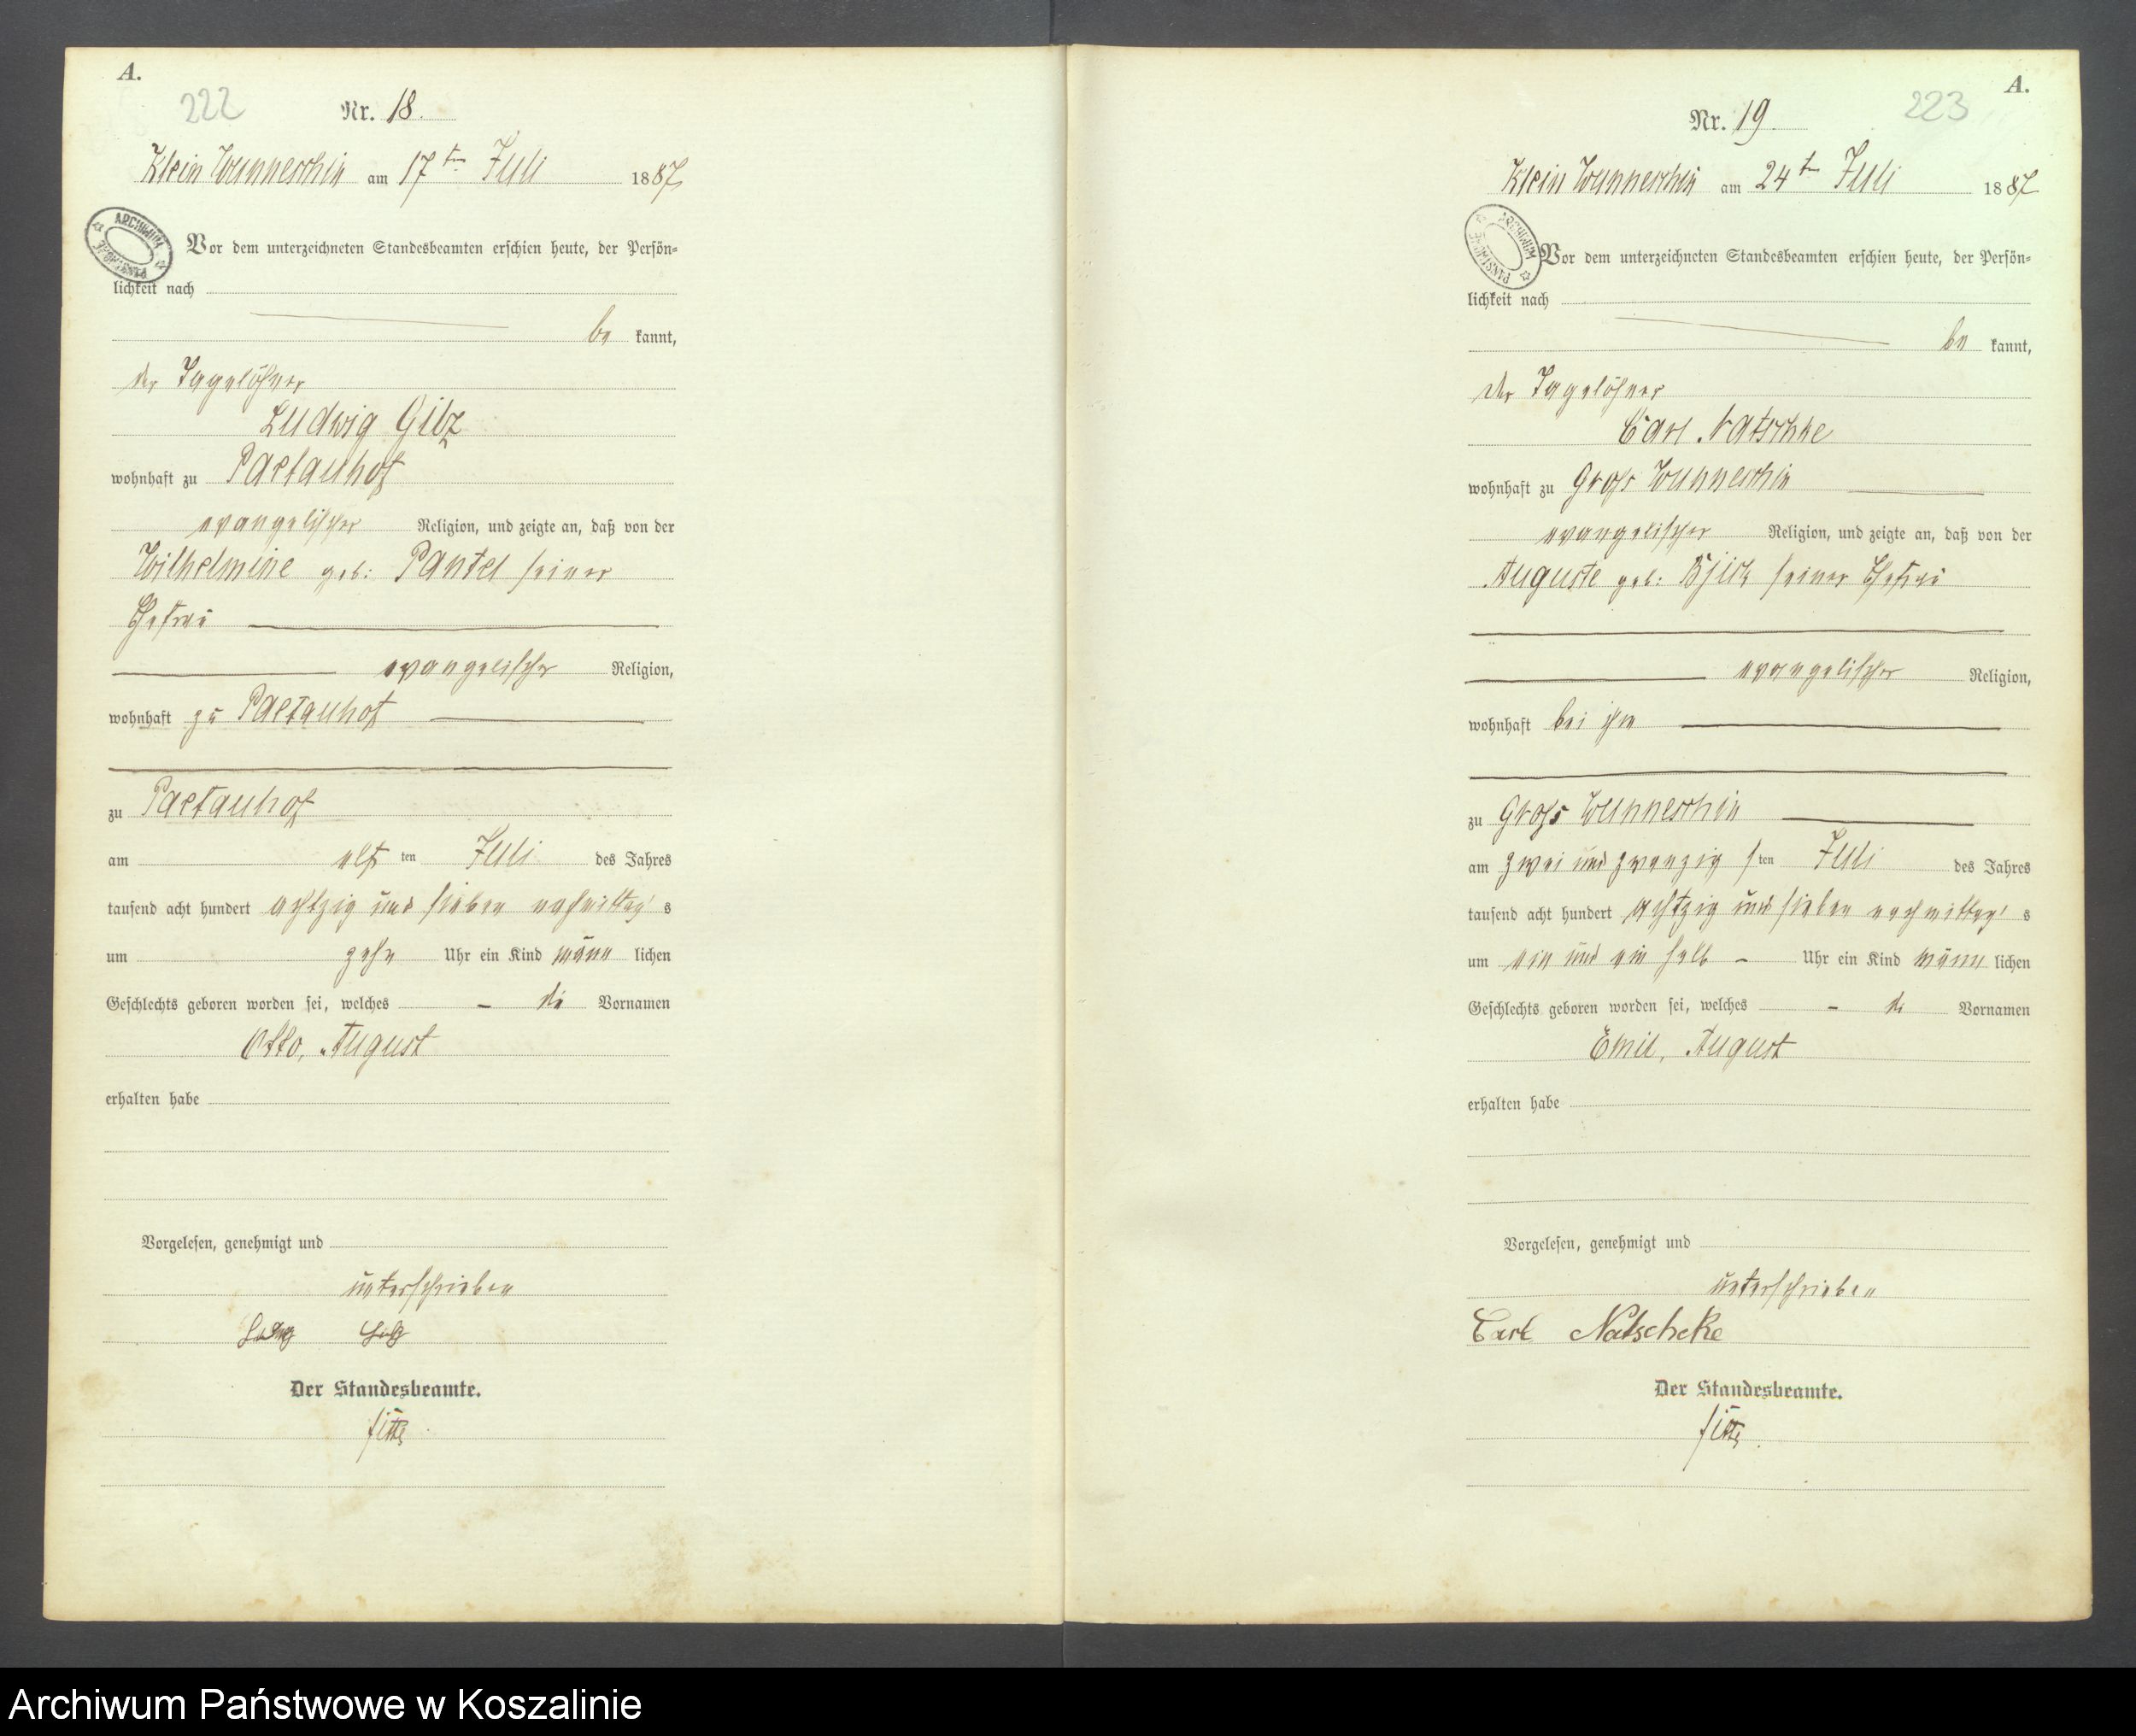 A.
222
Nr. 18.
Klein Wunneschin am 17ten Juli 1887
ARCHIWUM PAŃSTWOWE
Vor dem unterzeichneten Standesbeamten erschien heute, der Persön=
lichkeit nach
be kannt,
der Tagelöhner
Ludwig Gilz
wohnhaft zu Paetauhof
evangelischer Religion, und zeigte an, daß von der
Wilhelmine geb: Pantel seiner
Ehefrau
evangelischer Religion,
wohnhaft zu Paetauhof
zu Paetauhof
am elf ten Juli des Jahres
tausend acht hundert achtzig und sieben nachmittag's
um zehn Uhr ein Kind männ lichen
Geschlechts geboren worden sei, welches die Vornamen
Otto, August
erhalten habe
Vorgelesen, genehmigt und
unterschrieben
Ludwig
Der Standesbeamte.
A.
223
Nr. 19.
Klein Wunneschin am 24ten Juli 1887
ARCHIWUM PAŃSTWOWE
Vor dem unterzeichneten Standesbeamten erschien heute, der Persön=
lichkeit nach
be kannt,
der Tagelöhner
Carl Natschke
wohnhaft zu Gross Wunneschin
evangelischer Religion, und zeigte an, daß von der
Auguste geb: seiner Ehefrau
evangelischer Religion,
wohnhaft bei ihm
zu Gross Wunneschin
am zwei und zwanzig sten Juli des Jahres
tausend acht hundert achtzig und sieben nachmittag's
um ein und ein halb Uhr ein Kind männ lichen
Geschlechts geboren worden sei, welches die Vornamen
Emil, August
erhalten habe
Vorgelesen, genehmigt und
unterschrieben
Carl Natschcke
Der Standesbeamte.
Archiwum Państwowe w Koszalinie